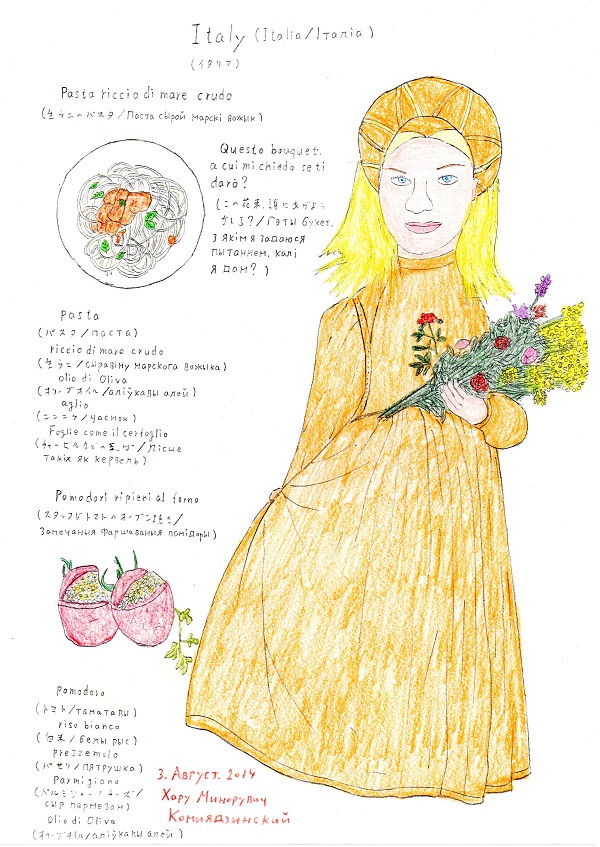 Italy (Italia/Італія)
(イタリア)
Pasta riccio di mare crudo
(生ウニのパスタ/Паста сырой марскі вожык)
Questo bouquet.
a cui mi chiedo se ti
darò?
(この花束、誰にあげよう
かしら?/Гэты букет.
З якім я задаюся
пытаннем, калі
я дам?)
Pasta
(パスタ/паста)
riccio di mare crudo
(生ウニ/сыравіну марскога вожыка)
olio di Oliva
(オリーブオイル/аліўкавы алей)
aglio
(ニンニク/часнок)
Foglie come il cerfoglio
(チャービルなどの葉/Лісце
такіх як кервель)
Pomodori ripieni al forno
(スタッフドトマトのオーブン焼き/
Запечаныя фаршаваныя памідоры)
pomodoro
(トマト/таматавы)
riso bianco
(白米/белы рыс)
prezzemolo
(パセリ/пятрушка)
Parmigiano
(パルミジャーノチーズ/
сыр пармезан)
Olio di Oliva
(オリーブオイル/аліўкавы алей)
3. Август. 2014
Хару Минорувич
Комиядзинский